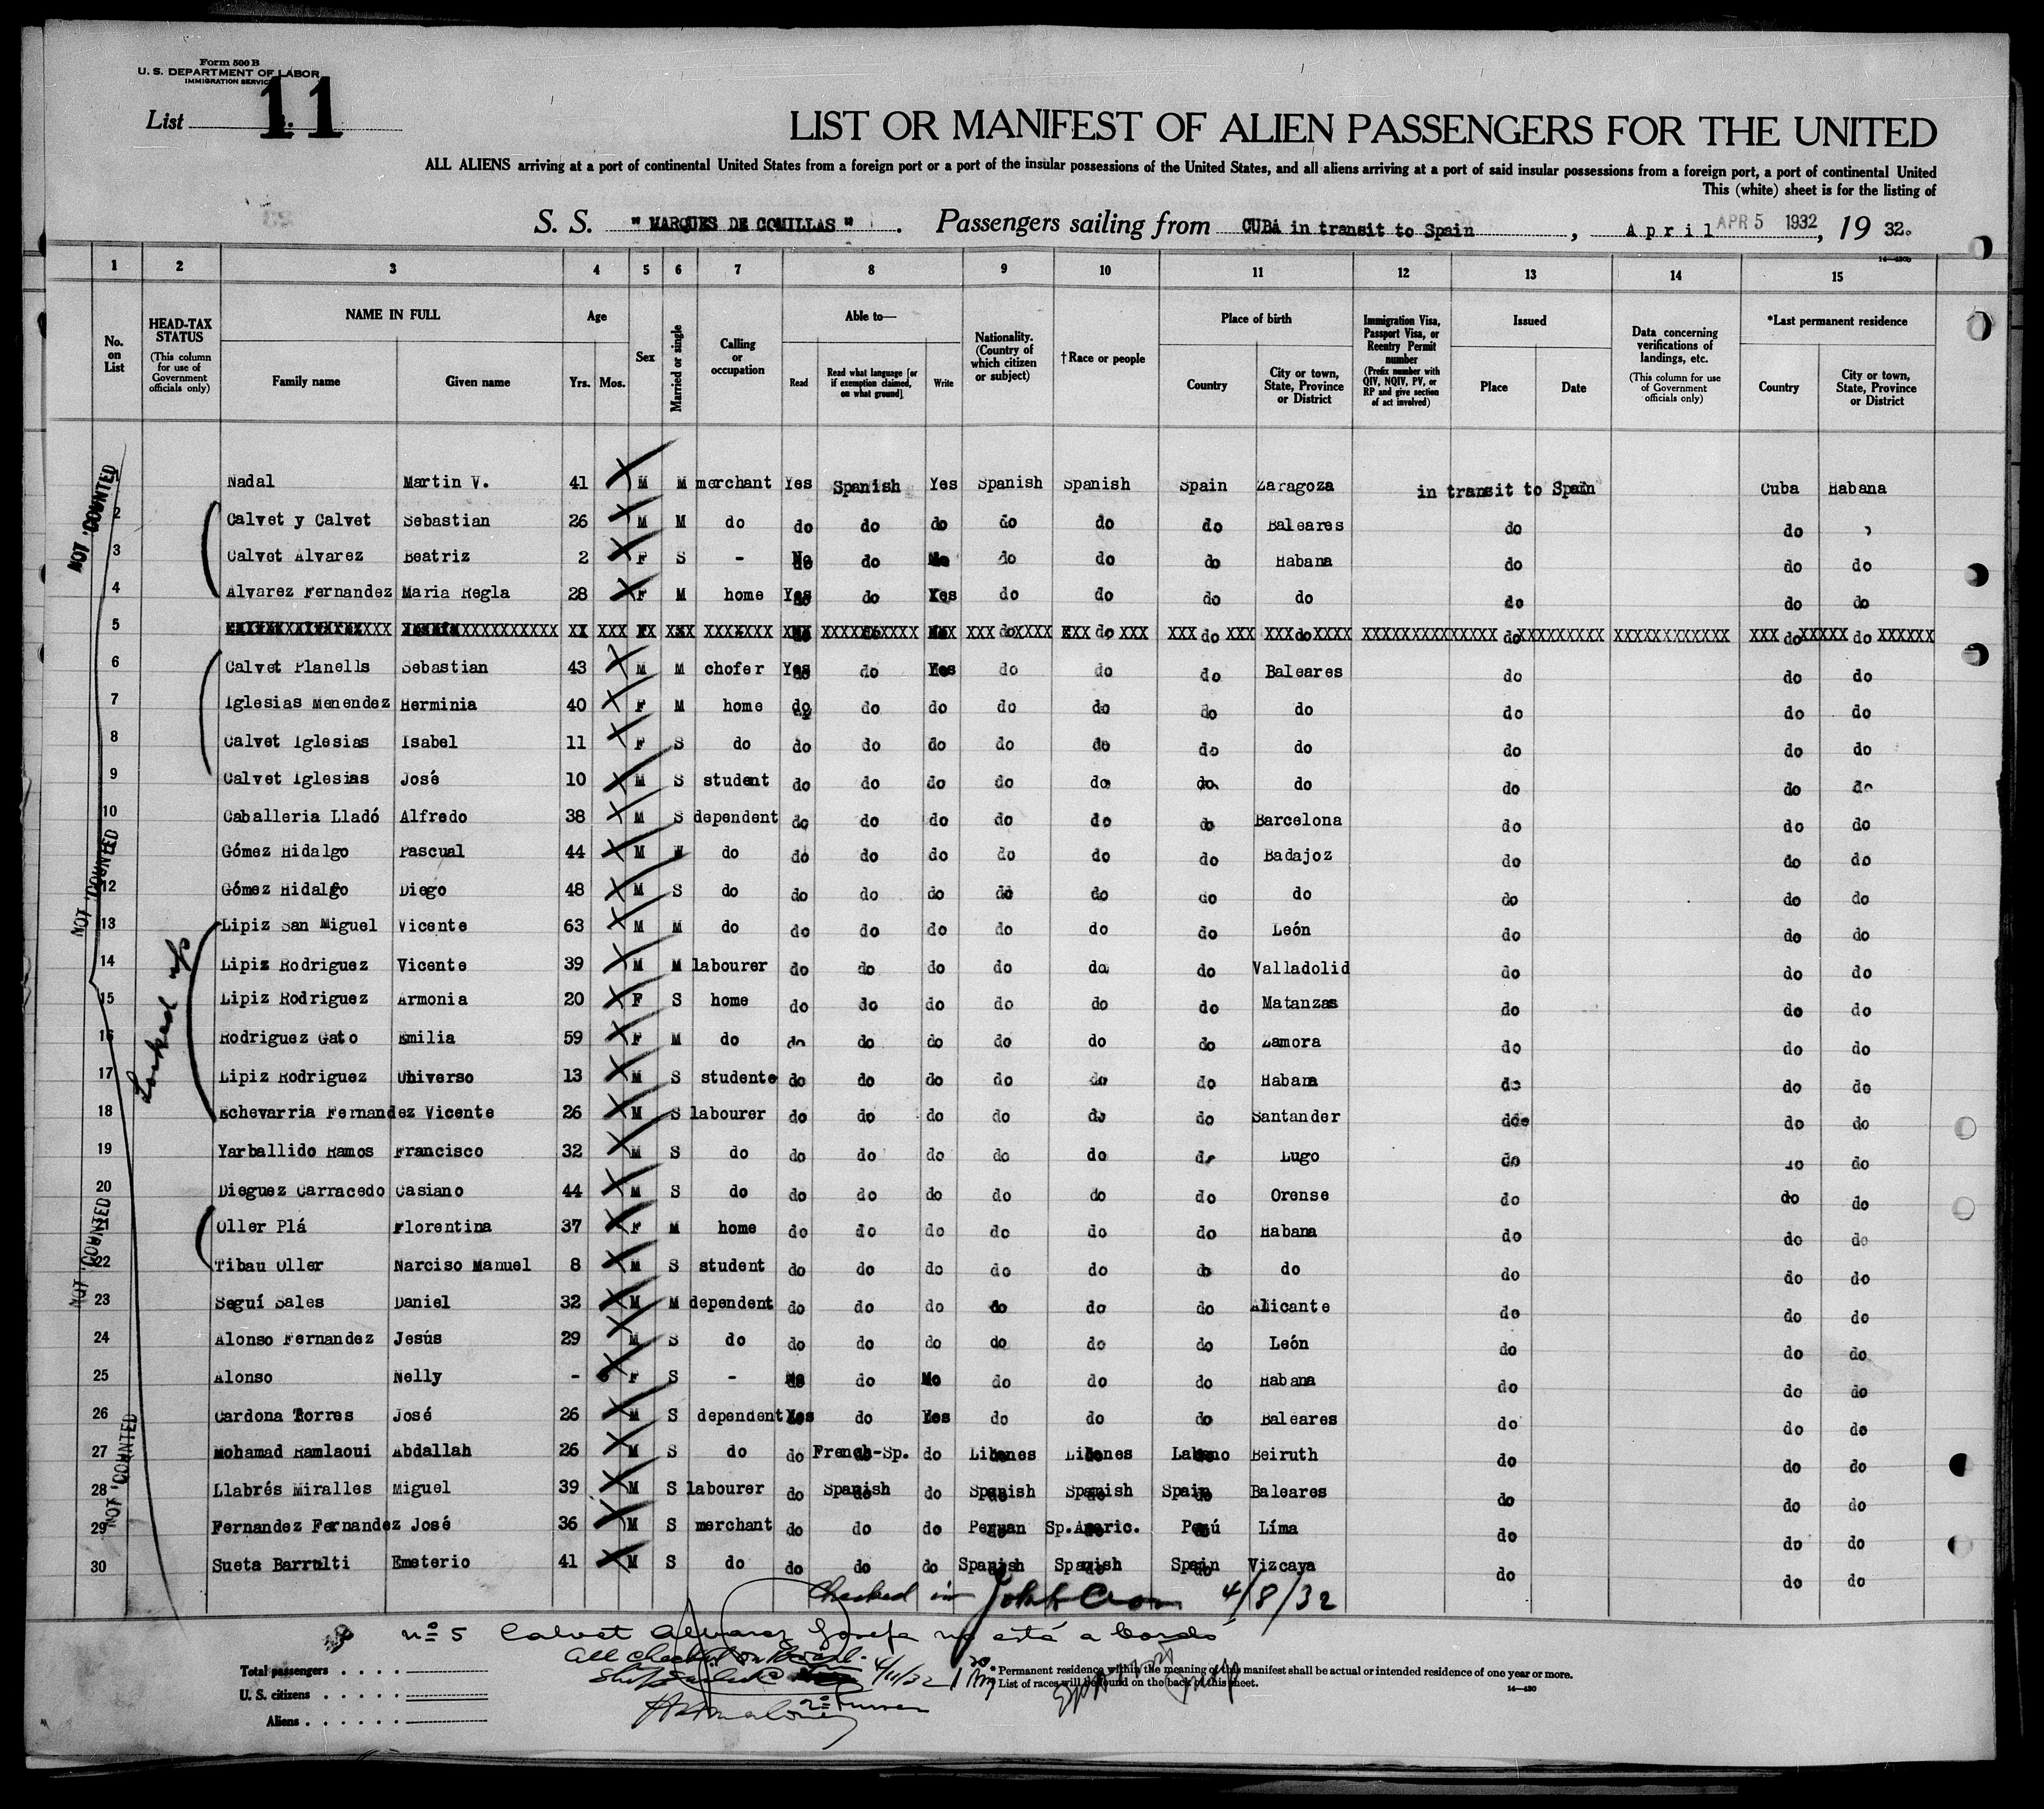 Form 500 B
U. S. DEPARTMENT OF LABOR
IMMIGRATION SERVICE
List 11
LIST OR MANIFEST OF ALIEN PASSENGERS FOR THE UNITED
ALL ALIENS arriving at a port of continental United States from a foreign port or a port of the insular possessions of the United States, and all aliens arriving at a port of said insular possessions from a foreign port, a port of continental United
This (white) sheet is for the listing of
S. S. "MARQUES DE COMILLAS". Passengers sailing from CUBA in transit to Spain, April APR 5 1932, 19 32.
14—430b
1 2 3 4 5 6 7 8 9 10 11 12 13 14 15
No. on List
HEAD-TAX STATUS (This column for use of Government officials only)
NAME IN FULL
Family name Given name
Age
Yrs. Mos.
Sex
Married or single
Calling or occupation
Able to—
Read Read what language [or if exemption claimed, on what ground] Write
Nationality. (Country of which citizen or subject)
†Race or people
Place of birth
Country City or town, State, Province or District
Immigration Visa, Passport Visa, or Reentry Permit number (Prefix number with QIV, NQIV, PV, or RP and give section of act involved)
Issued
Place Date
Data concerning verifications of landings, etc. (This column for use of Government officials only)
*Last permanent residence
Country City or town, State, Province or District
NOT COUNTED
1 Nadal Martin V. 41 M M merchant Yes Spanish Yes Spanish Spanish Spain Zaragoza in transit to Spain Cuba Habana
2 Calvet y Calvet Sebastian 26 M M do do do do do do do Baleares do do
3 Calvet Alvarez Beatriz 2 F S - No do No do do do Habana do do do
4 Alvarez Fernandez Maria Regla 28 F M home Yes do Yes do do do do do do do
5
6 Calvet Planells Sebastian 43 M M chofer Yes do Yes do do do Baleares do do do
7 Iglesias Menendez Herminia 40 F M home do do do do do do do do do do
8 Calvet Iglesias Isabel 11 F S do do do do do do do do do do do
9 Calvet Iglesias José 10 M S student do do do do do do do do do do
10 Caballeria Lladó Alfredo 38 M S dependent do do do do do do Barcelona do do do
NOT COUNTED
Gómez Hidalgo Pascual 44 M W do do do do do do do Badajoz do do do
12 Gómez Hidalgo Diego 48 M S do do do do do do do do do do do
13 Lipiz San Miguel Vicente 63 M M do do do do do do do León do do do
Looked up
14 Lipiz Rodriguez Vicente 39 M M labourer do do do do do do Valladolid do do do
15 Lipiz Rodriguez Armonia 20 F S home do do do do do do Matanzas do do do
16 Rodriguez Gato Emilia 59 F M do do do do do do do Zamora do do do
17 Lipiz Rodriguez Universo 13 M S studente do do do do do do Habana do do do
18 Echevarria Fernandez Vicente 26 M S labourer do do do do do do Santander do do do
19 Yarballido Ramos Francisco 32 M S do do do do do do do Lugo do do do
20 Dieguez Carracedo Casiano 44 M S do do do do do do do Orense do do do
NOT COUNTED
Oller Plá Florentina 37 F M home do do do do do do Habana do do do
22 Tibau Oller Narciso Manuel 8 M S student do do do do do do do do do do
23 Seguí Sales Daniel 32 M M dependent do do do do do do Alicante do do do
24 Alonso Fernandez Jesús 29 M S do do do do do do do León do do do
25 Alonso Nelly - F S - No do No do do do Habana do do do
26 Cardona Torres José 26 M S dependent Yes do Yes do do do Baleares do do do
NOT COUNTED
27 Mohamad Ramlaoui Abdallah 26 M S do do French-Sp. do Libenes Libenes Labano Beiruth do do do
28 Llabrés Miralles Miguel 39 M S labourer do Spanish do Spanish Spanish Spain Baleares do do do
29 Fernandez Fernandez José 36 M S merchant do do do Peruan Sp.Americ. Perú Líma do do do
30 Sueta Barrulti Emeterio 41 M S do do do do Spanish Spanish Spain Vizcaya do do do
Checked in John 4/8/32
nº 5 Calvet Alvarez Josefa no está a bordo
All checked on board. 4/11/32
Total passengers
U. S. citizens
Aliens
* Permanent residence within the meaning of this manifest shall be actual or intended residence of one year or more.
† List of races will be found on the back of this sheet.
14—430